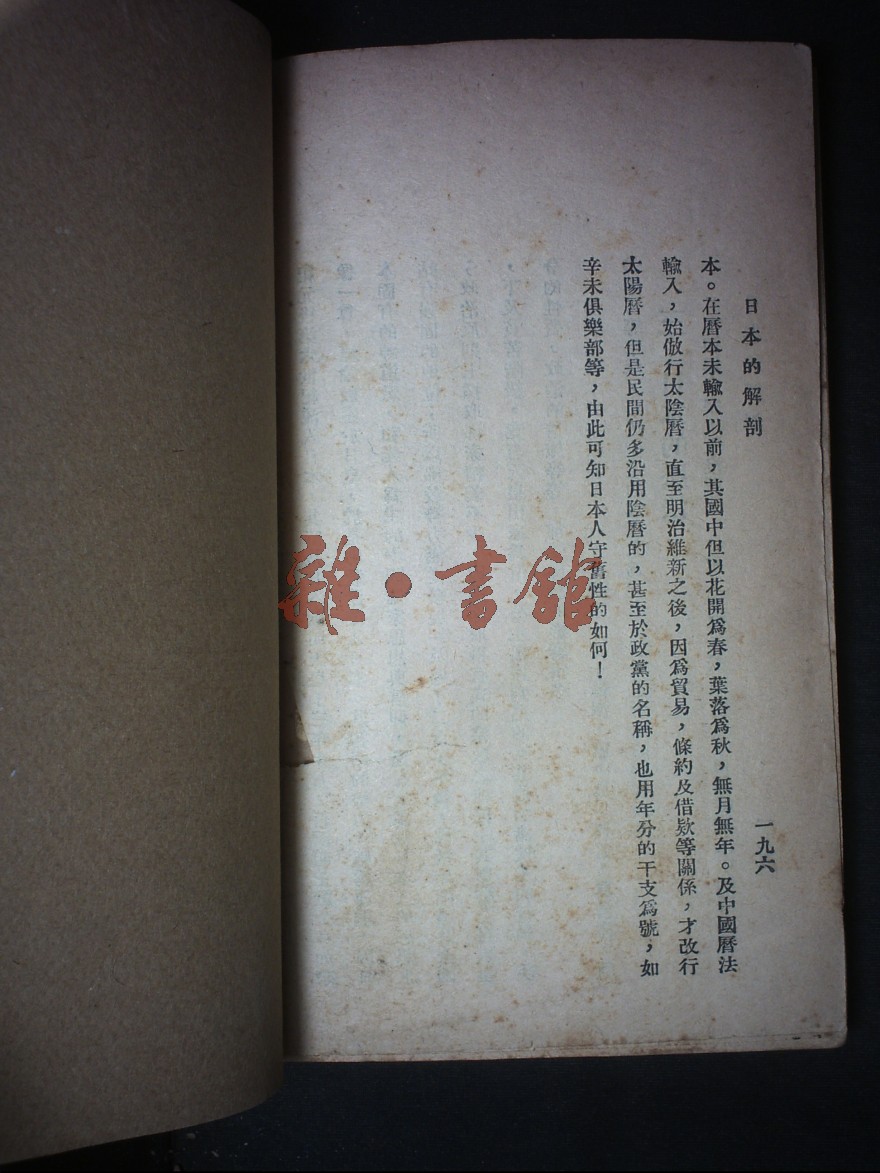 日本的解剖
一九六
本。在曆本未輸入以前，其國中但以花開爲春，葉落爲秋，無月無年。及中國曆法
輸入，始倣行太陰曆，直至明治維新之後，因爲貿易，條約及借欵等關係，才改行
太陽曆，但是民間仍多沿用陰曆的，甚至於政黨的名稱，也用年分的干支爲號，如
辛未俱樂部等，由此可知日本人守舊性的如何！
雜·書館